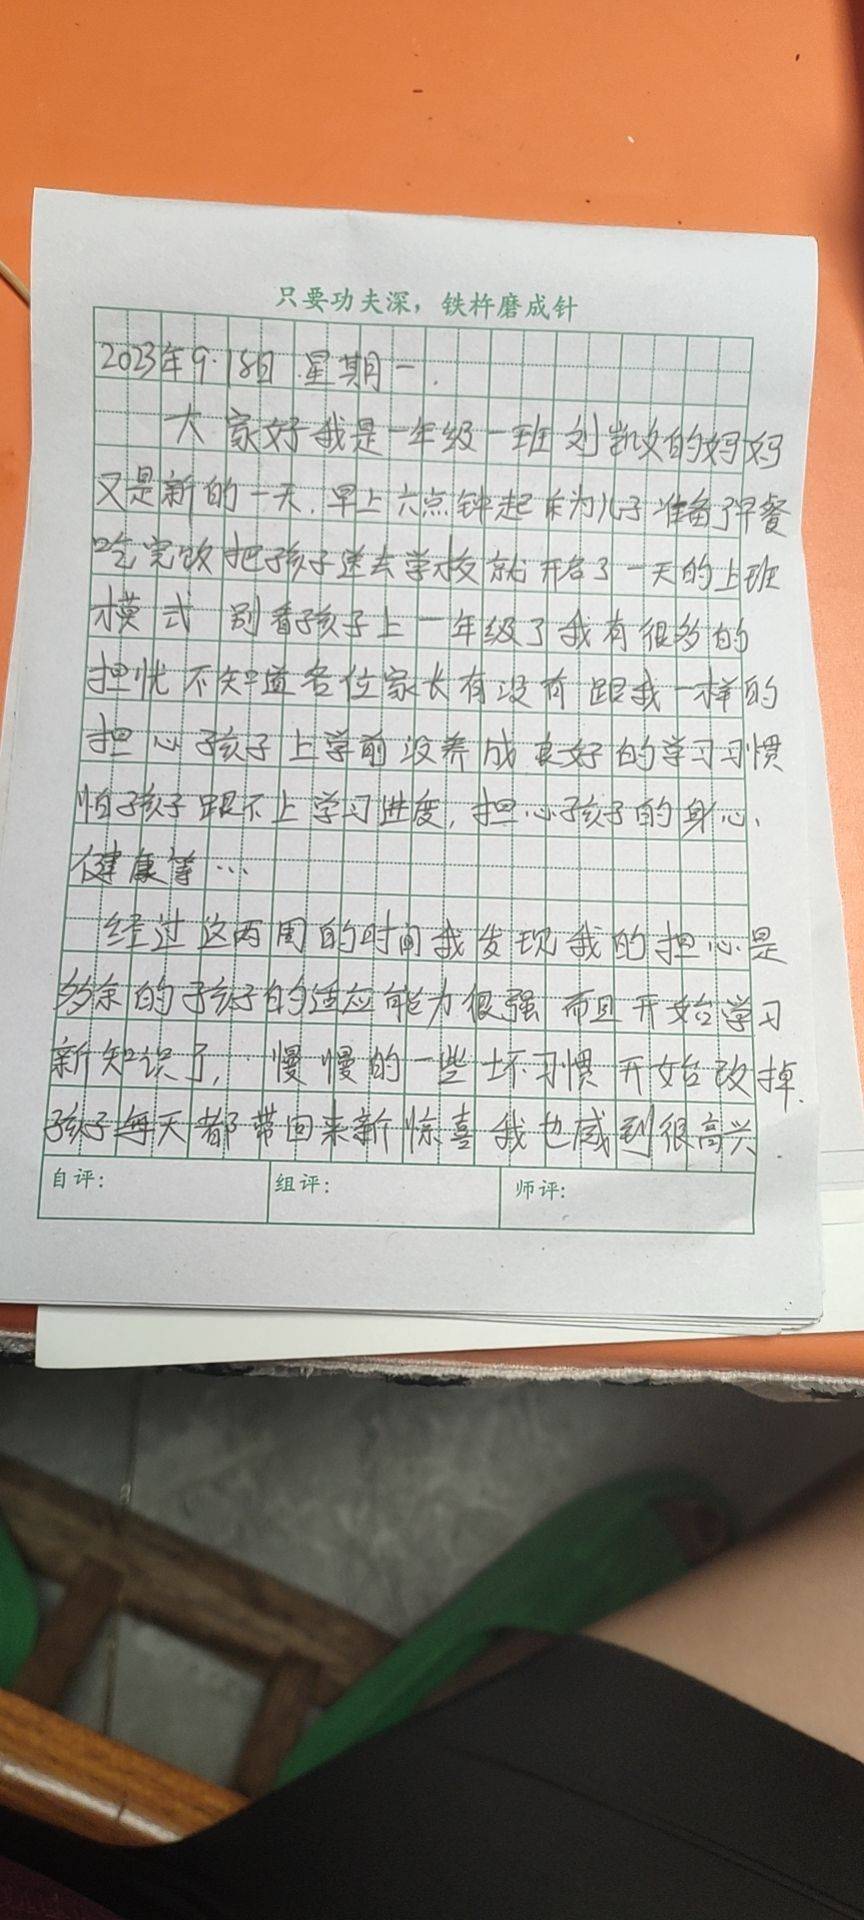 只要功夫深，铁杵磨成针
2023年9.18日 星期一.
大家好我是一年级一班刘凯文的妈妈
又是新的一天.早上六点钟起床为儿子准备了早餐
吃完饭把孩子送去学校就开启了一天的上班
模式 别看孩子上一年级了我有很多的
担忧不知道各位家长有没有跟我一样的
担心孩子上学前没养成良好的学习习惯
怕孩子跟不上学习进度,担心孩子的身心、
健康等…
经过这两周的时间我发现我的担心是
多余的孩子的适应能力很强 而且开始学习
新知识了,慢慢的一些坏习惯开始改掉.
孩子每天都带回来新惊喜我也感到很高兴
自评：
组评：
师评：